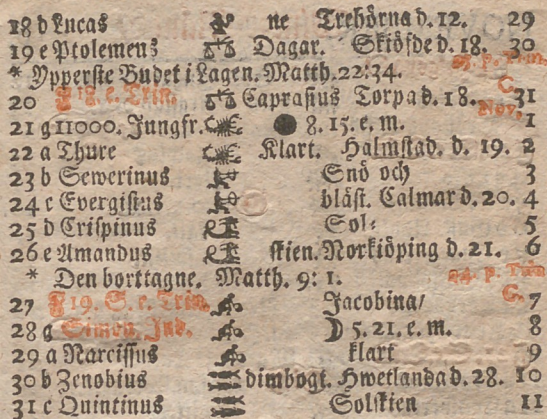 18 d Lucas ne Trehörna d. 12. 29
19 e Ptolemeus Dagar. Skiöfde d. 18. 30
* Ypperste Budet i Lagen. Matth. 22:34. 23. p. Trin.
20 F 18. e. Trin. Caprasius Torpa d. 18. G. 31
21 g 11000. Jungfr. ● 8. 15. e. m. Nov. 1
22 a Thure Klart. Halmstad. d. 19. 2
23 b Sewerinus Snö och 3
24 c Evergistus bläst. Calmar d. 20. 4
25 d Crispinus Sol⸗ 5
26 e Amandus skien. Norkiöping d. 21. 6
* Den borttagne. Matth. 9: 1. 24. p. Trin
27 F 19. S. e. Trin. Jacobina/ G. 7
28 g Simon. Jud. ☽ 5. 21. e. m. 8
29 a Narcissus klart 9
30 b Zenobius dimbogt. Hwetlanda d. 28. 10
31 c Quintinus Solskien 11